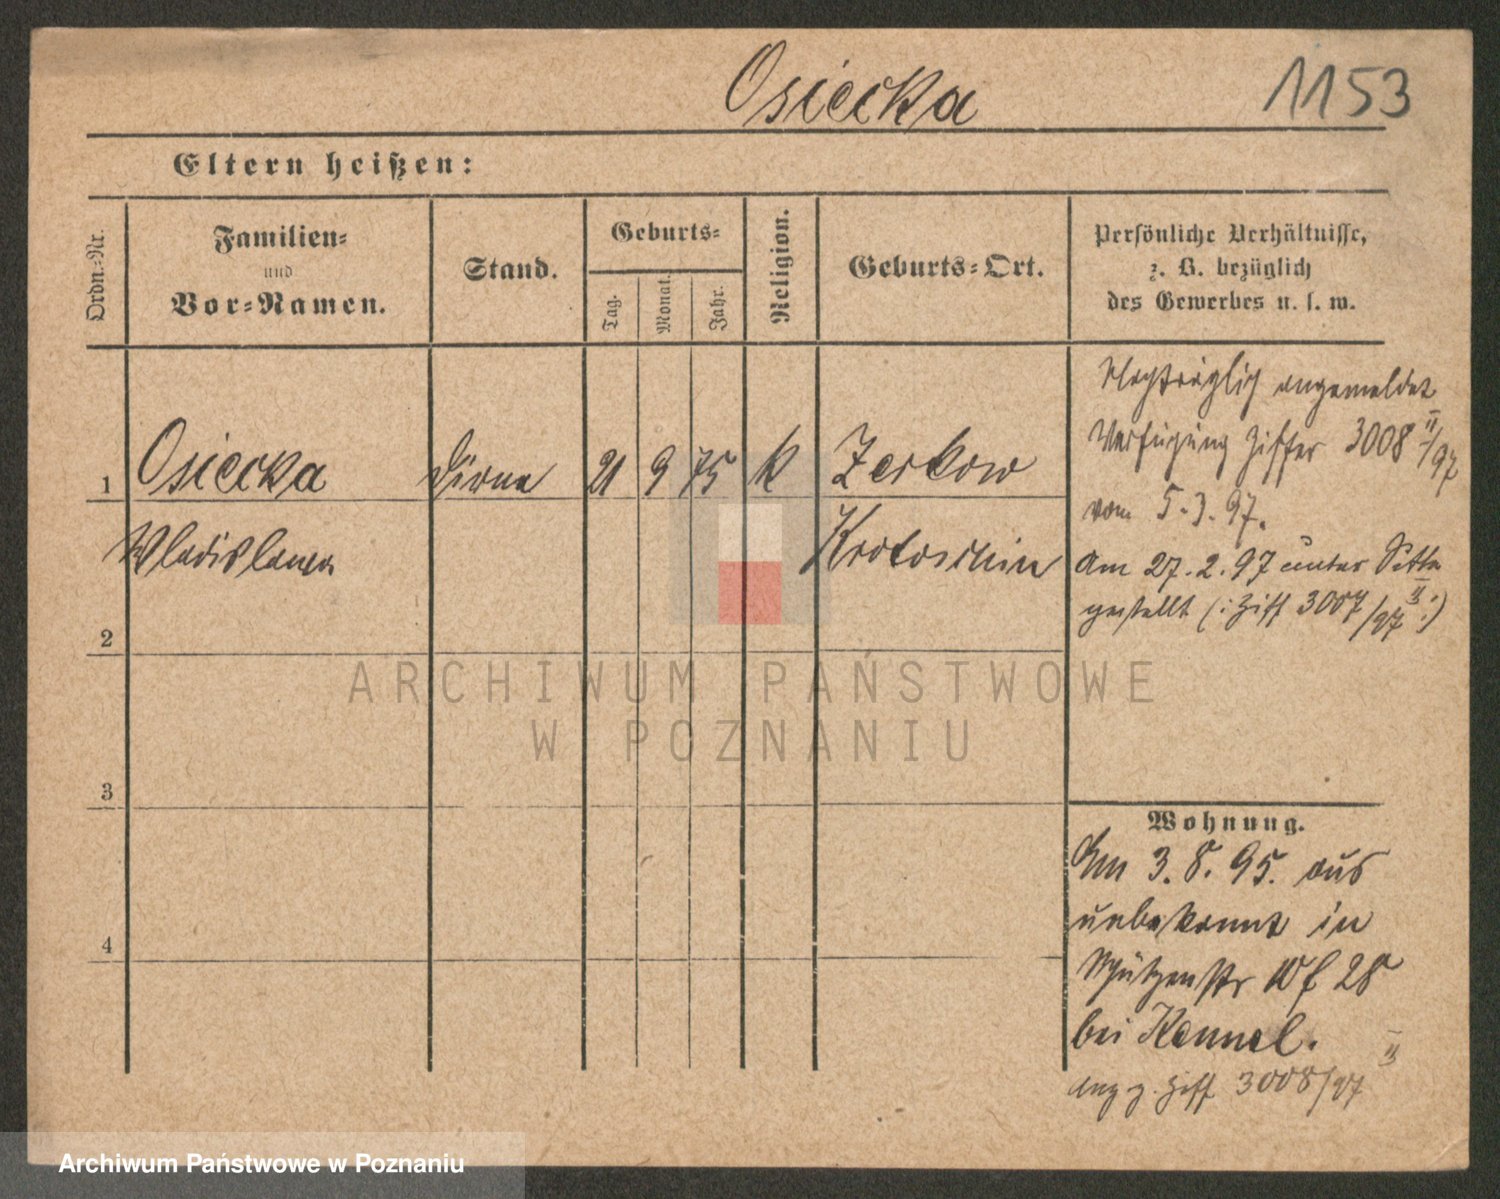 Osiecka
1153
Eltern heißen:
Ordn.-Nr.
Familien-
und
Vor-Namen.
Stand.
Geburts-
Tag.
Monat.
Jahr.
Religion.
Geburts-Ort.
Persönliche Verhältnisse,
z. B. bezüglich
des Gewerbes u. s. w.
1
Osiecka
Dirne
21
9
75
k
Zerkow
Wladislawa
Krotoschin
2
3
4
Nachträglich angemeldet
Verfügung Ziffer 3008 II/97
vom 5.3.97.
Am 27.2.97 unter Sitte
gestellt (: Ziff 3007/97 II :)
Wohnung.
Am 3.8.95. aus
unbekannt in
Schützenstr 28
bei Kennel.
Ziff 3008/97 II
ARCHIWUM PAŃSTWOWE
W POZNANIU
Archiwum Państwowe w Poznaniu